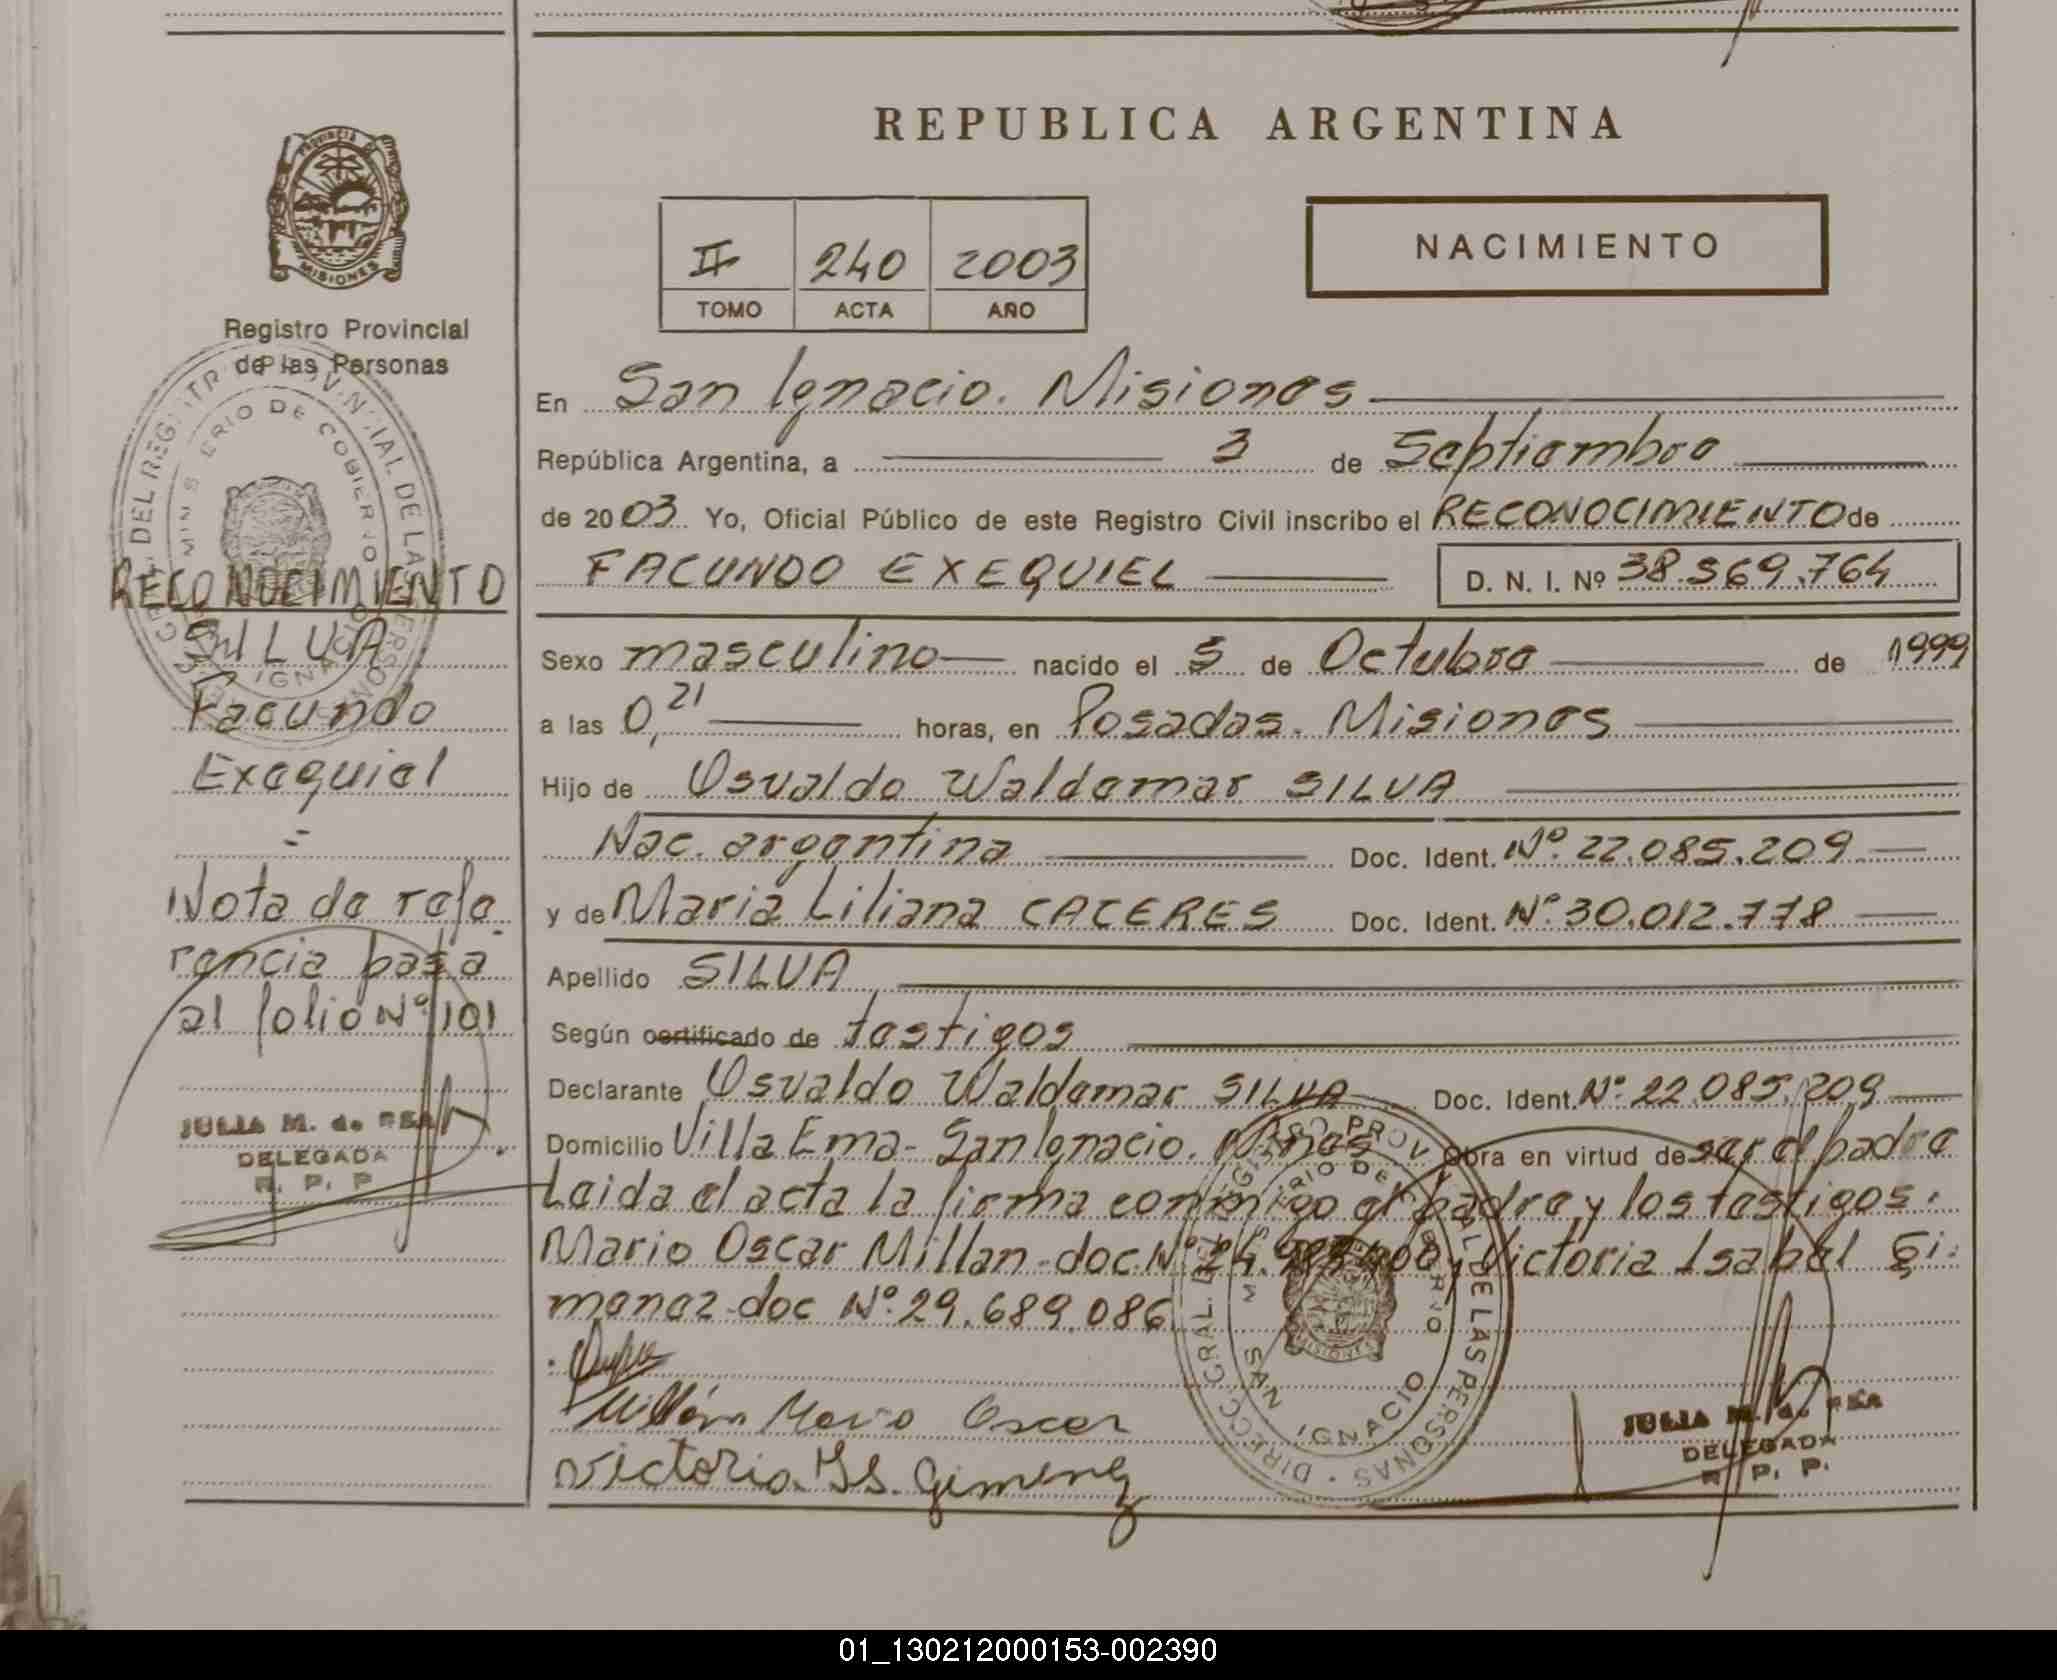 REPUBLICA ARGENTINA
NACIMIENTO
II 240 2003
TOMO ACTA AÑO
PROVINCIA DE
MISIONES
Registro Provincial
de las Personas
RECONOCIMIENTO
SILVA
Facundo
Exequiel
=
Nota de refe
rencia pasa
al folio Nº 101
JULIA M. de REA
DELEGADA
R. P. P.
En San Ignacio. Misiones
República Argentina, a 3 de Septiembre
de 2003 Yo, Oficial Público de este Registro Civil inscribo el RECONOCIMIENTO de
FACUNDO EXEQUIEL D. N. I. Nº 38.569.764
Sexo masculino nacido el 5 de Octubre de 1999
a las 0,21 horas, en Posadas. Misiones
Hijo de Osvaldo Waldemar SILVA
Nac. argentina Doc. Ident. Nº. 22.085.209
y de Maria Liliana CACERES Doc. Ident. Nº. 30.012.778
Apellido SILVA
Según certificado de testigos
Declarante Osvaldo Waldemar SILVA Doc. Ident. Nº. 22.085.209
Domicilio Villa Ema - San Ignacio. Mnes Obra en virtud de ser el padre
Leida el acta la firma conmigo el padre, y los testigos.
Mario Oscar Millan - doc. Nº y Victoria Isabel Gi
menez - doc Nº. 29.689.086
Millán Mario Oscar
Victoria Is. Gimenez
DIRECC. GRAL. DEL REGISTRO PROVINCIAL DE LAS PERSONAS
MINISTERIO DE GOBIERNO
SAN IGNACIO
MISIONES
JULIA M. de REA
DELEGADA
R. P. P.
01_130212000153-002390